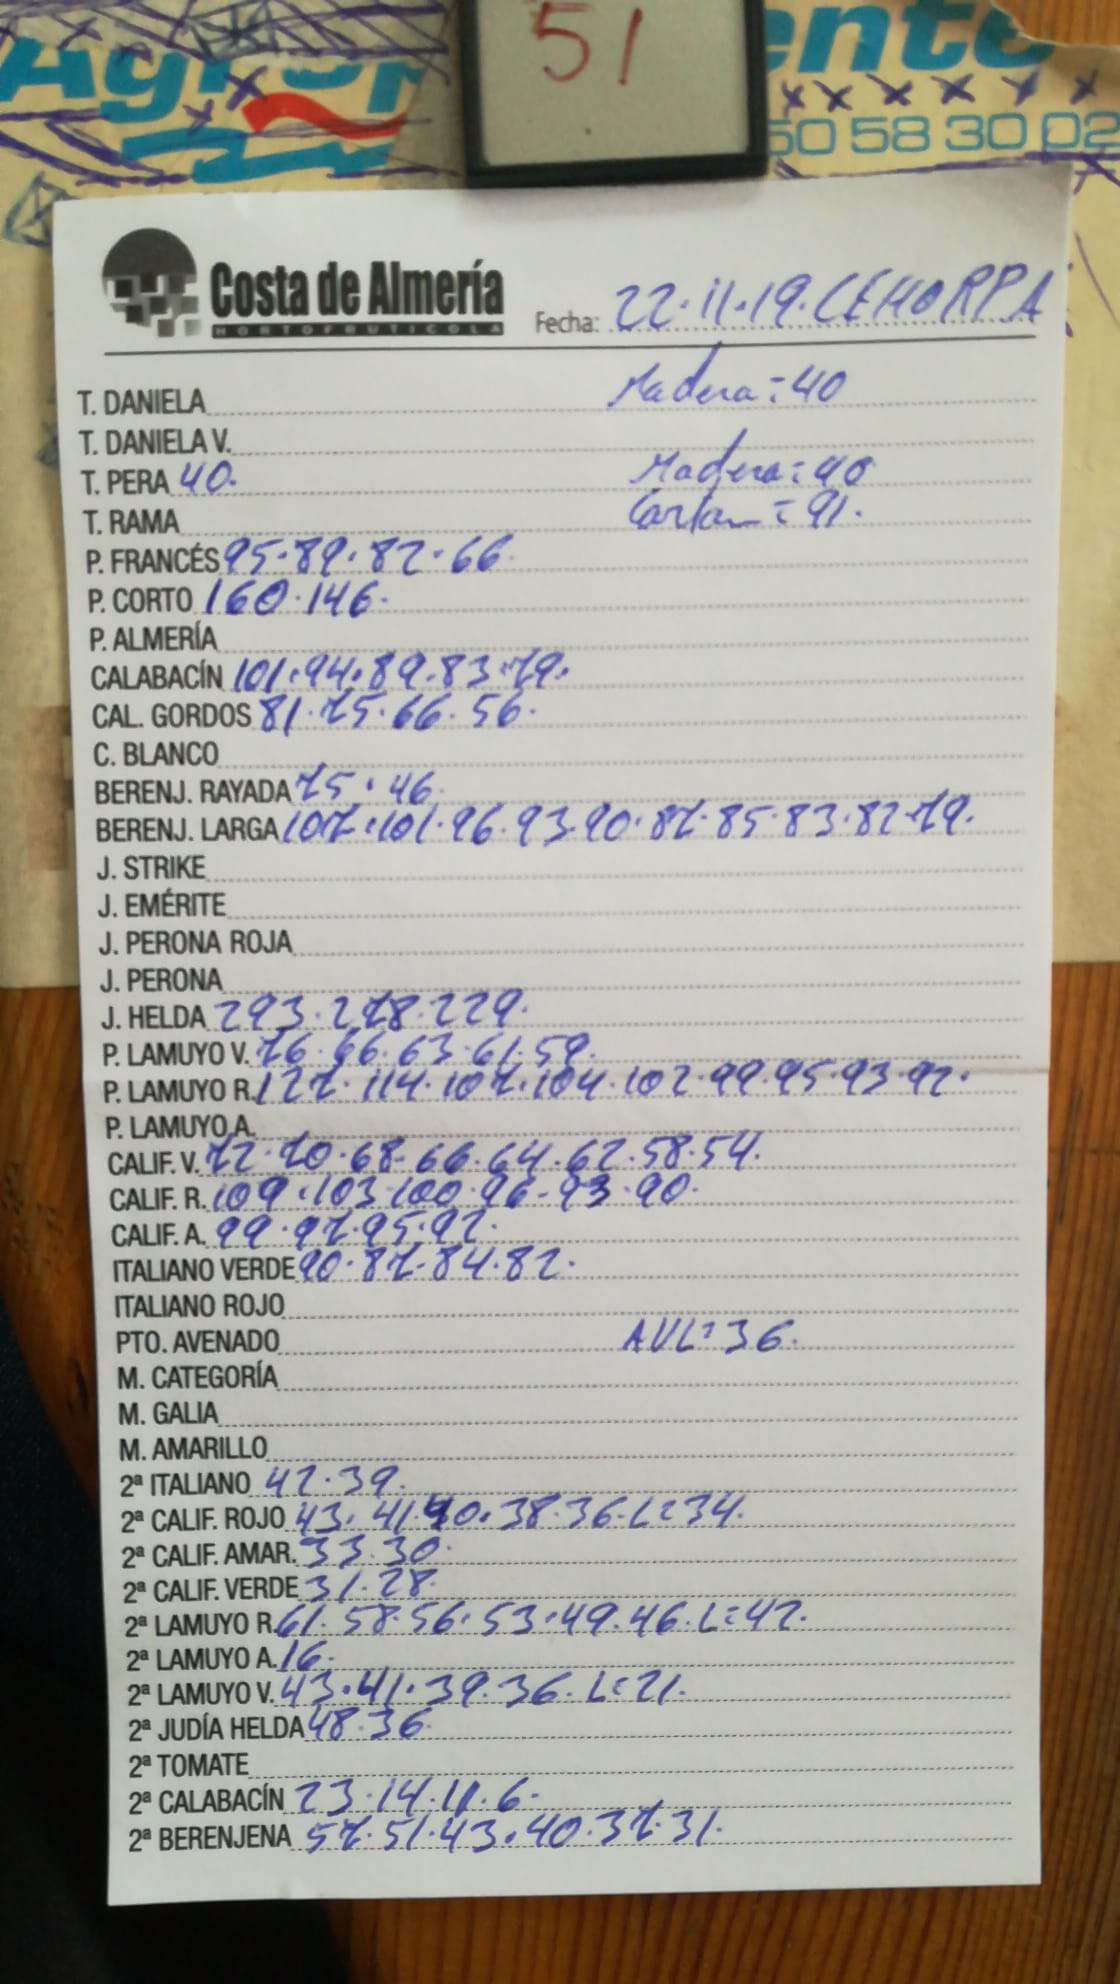 51
ente
50 58 30 02
Costa de Almería
HORTOFRUTICOLA
Fecha: 22.11.19. CEHORPA
T. DANIELA Madera = 40
T. DANIELA V.
T. PERA 40. Madera = 40
T. RAMA = 91.
P. FRANCÉS 95.89.82.66
P. CORTO 160.146.
P. ALMERÍA
CALABACÍN 101.94.89.83.79.
CAL. GORDOS 81.75.66.56.
C. BLANCO
BERENJ. RAYADA 75.46
BERENJ. LARGA 107.101.96.93.90.87.85.83.82.79.
J. STRIKE
J. EMÉRITE
J. PERONA ROJA
J. PERONA
J. HELDA 293.278.229.
P. LAMUYO V. 76.66.63.61.59.
P. LAMUYO R. 127.114.107.104.102.99.95.93.92.
P. LAMUYO A.
CALIF. V. 72.70.68.66.64.62.58.54.
CALIF. R. 109.103.100.96.93.90.
CALIF. A. 99.97.95.92.
ITALIANO VERDE 90.87.84.82.
ITALIANO ROJO
PTO. AVENADO AVL=36.
M. CATEGORÍA
M. GALIA
M. AMARILLO
2ª ITALIANO 42.39.
2ª CALIF. ROJO 43.41.40.38.36.L=34.
2ª CALIF. AMAR. 33.30.
2ª CALIF. VERDE 31.28.
2ª LAMUYO R. 61.58.56.53.49.46.L=42.
2ª LAMUYO A. 16.
2ª LAMUYO V. 43.41.39.36.L=21.
2ª JUDÍA HELDA 48.36.
2ª TOMATE
2ª CALABACÍN 23.14.11.6.
2ª BERENJENA 57.51.43.40.37.31.